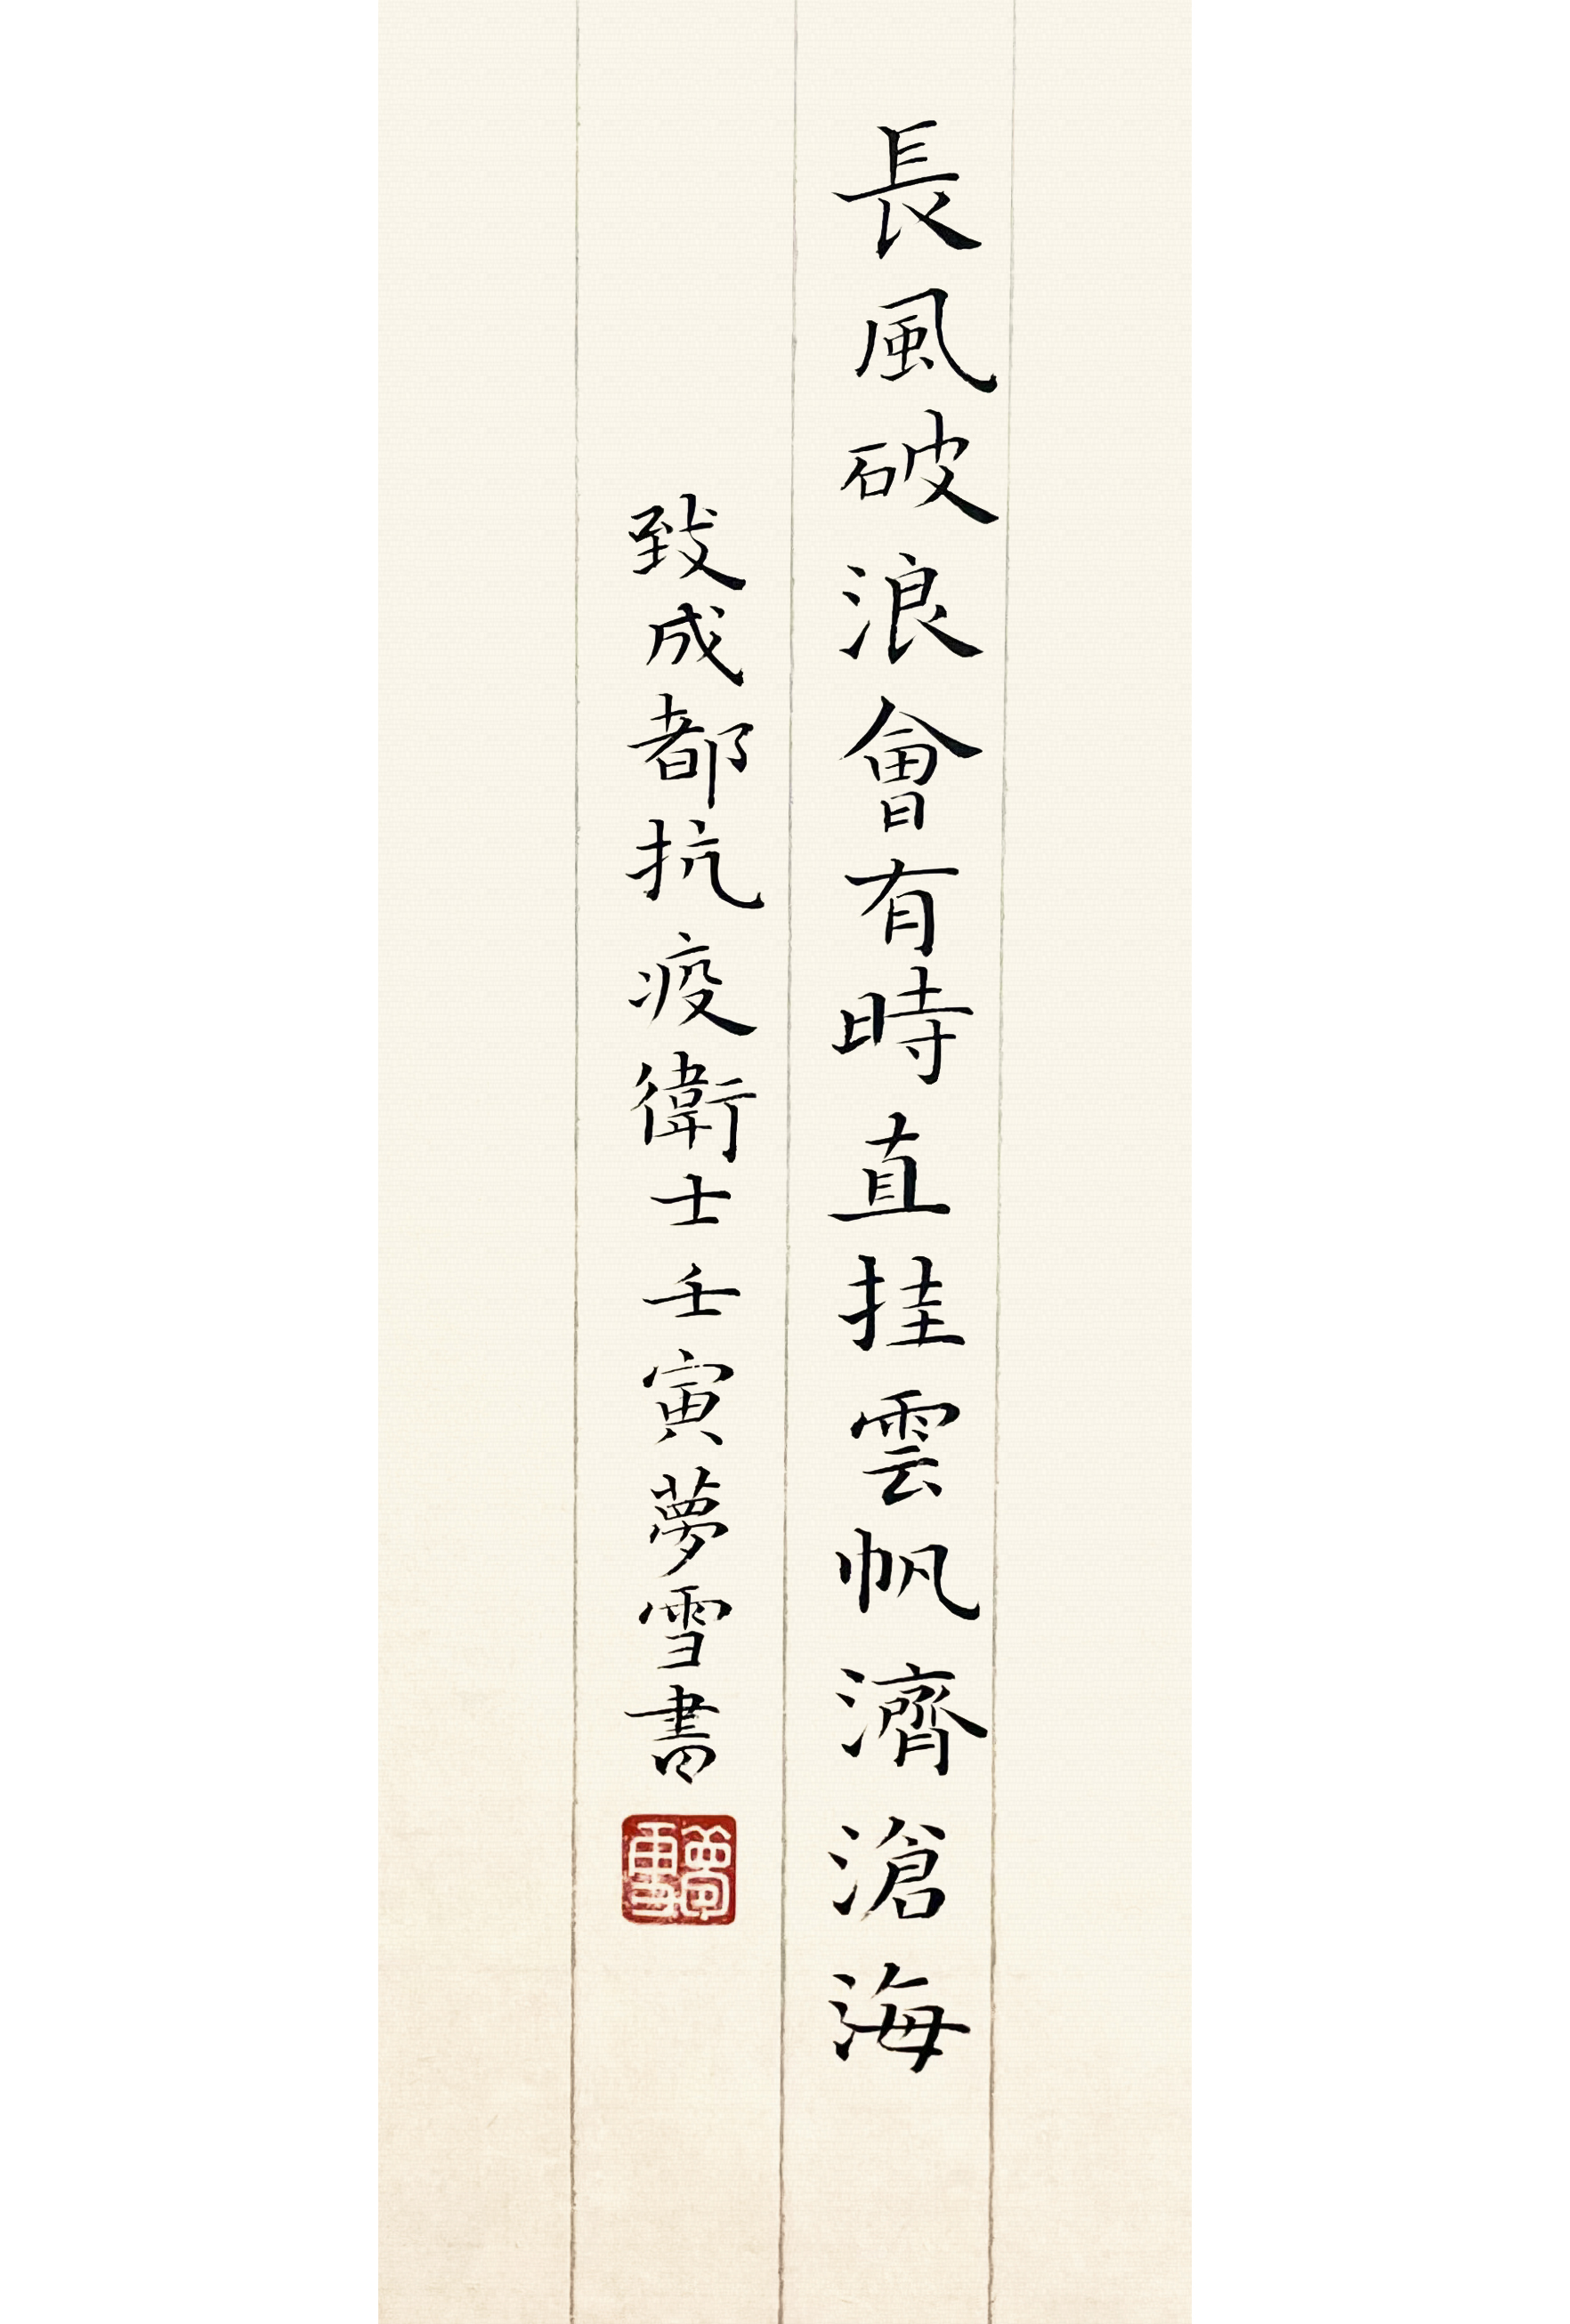 長風破浪會有時直挂雲帆濟滄海
致成都抗疫衛士壬寅夢雪書
夢雪